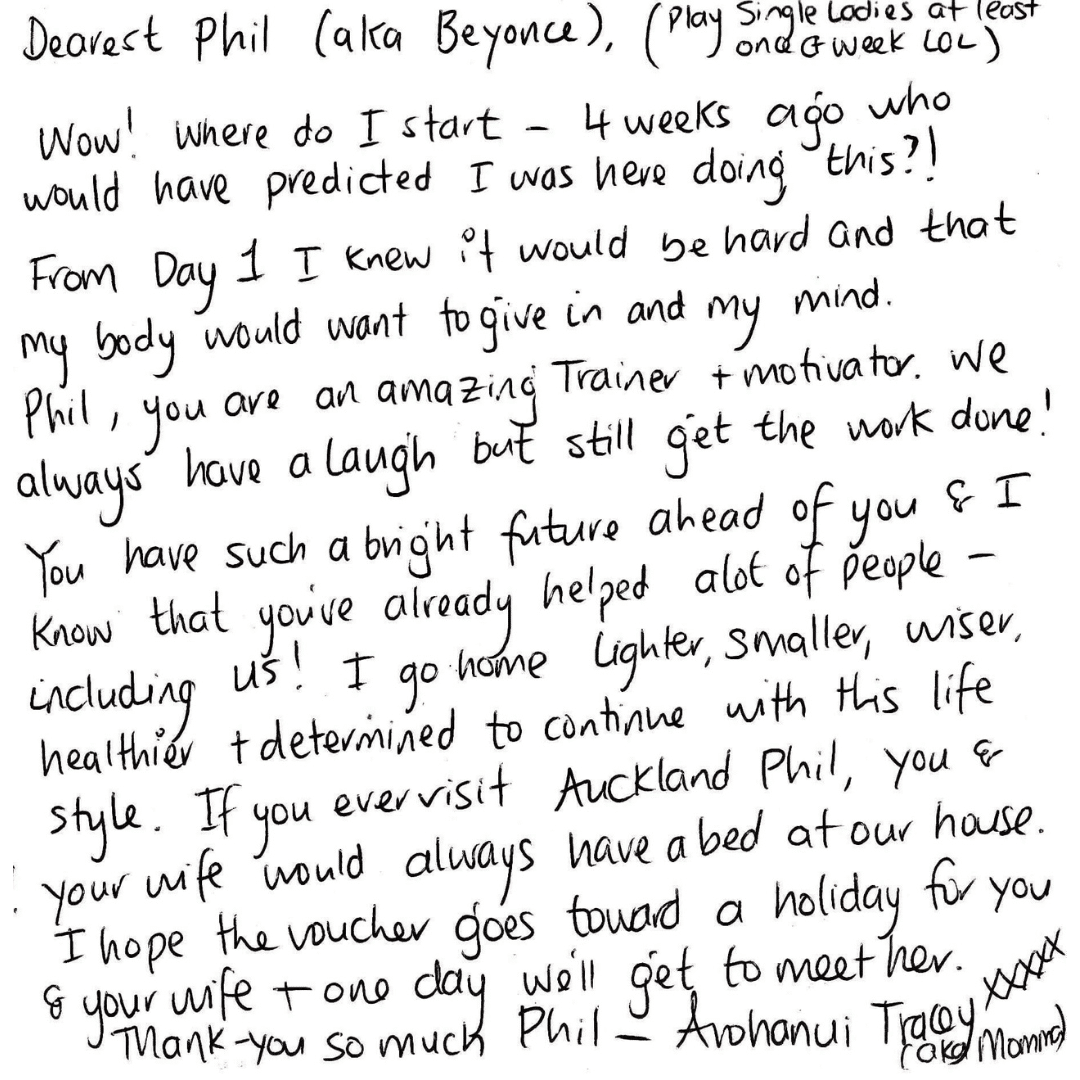 Dearest Phil (aka Beyonce), (Play Single Ladies at least
once a week LOL)
Wow! Where do I start - 4 weeks ago who
would have predicted I was here doing this?!
From Day 1 I knew it would be hard and that
my body would want to give in and my mind.
Phil, you are an amazing Trainer + motivator. We
always have a laugh but still get the work done!
You have such a bright future ahead of you & I
know that you've already helped alot of people -
including us! I go home lighter, smaller, wiser,
healthier + determined to continue with this life
style. If you ever visit Auckland Phil, you &
your wife would always have a bed at our house.
I hope the voucher goes toward a holiday for you
& your wife + one day we'll get to meet her.
Thank-you so much Phil - Arohanui Tracey xxxxx
(aka Momma)